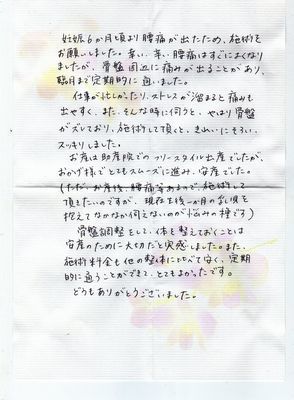 妊娠6か月頃より腰痛が出たため、施術を
お願いしました。幸い、腰痛はすぐによくなり
ましたが、骨盤周辺に痛みが出ることがあり、
臨月まで定期的に通いました。
仕事が忙しかったり、ストレスが溜まると痛みも
出やすく、また、そんな時に伺うと、やはり骨盤
がズレており、施術して頂くと、きれいにそろい、
スッキリしました。
お産は助産院でのフリースタイル出産でしたが、
おかげ様でとてもスムーズに進み、安産でした。
(ただ、お産後、腰痛等あるので、施術して
頂きたいのですが、現在生後一か月の乳児を
抱えてなかなか伺えないのが悩みの種です)
骨盤調整をして、体を整えておくことは
安産のために大切だと実感しました。また、
施術料金も他の整体に比べて安く、定期
的に通うことができて、とてもよかったです。
どうもありがとうございました。